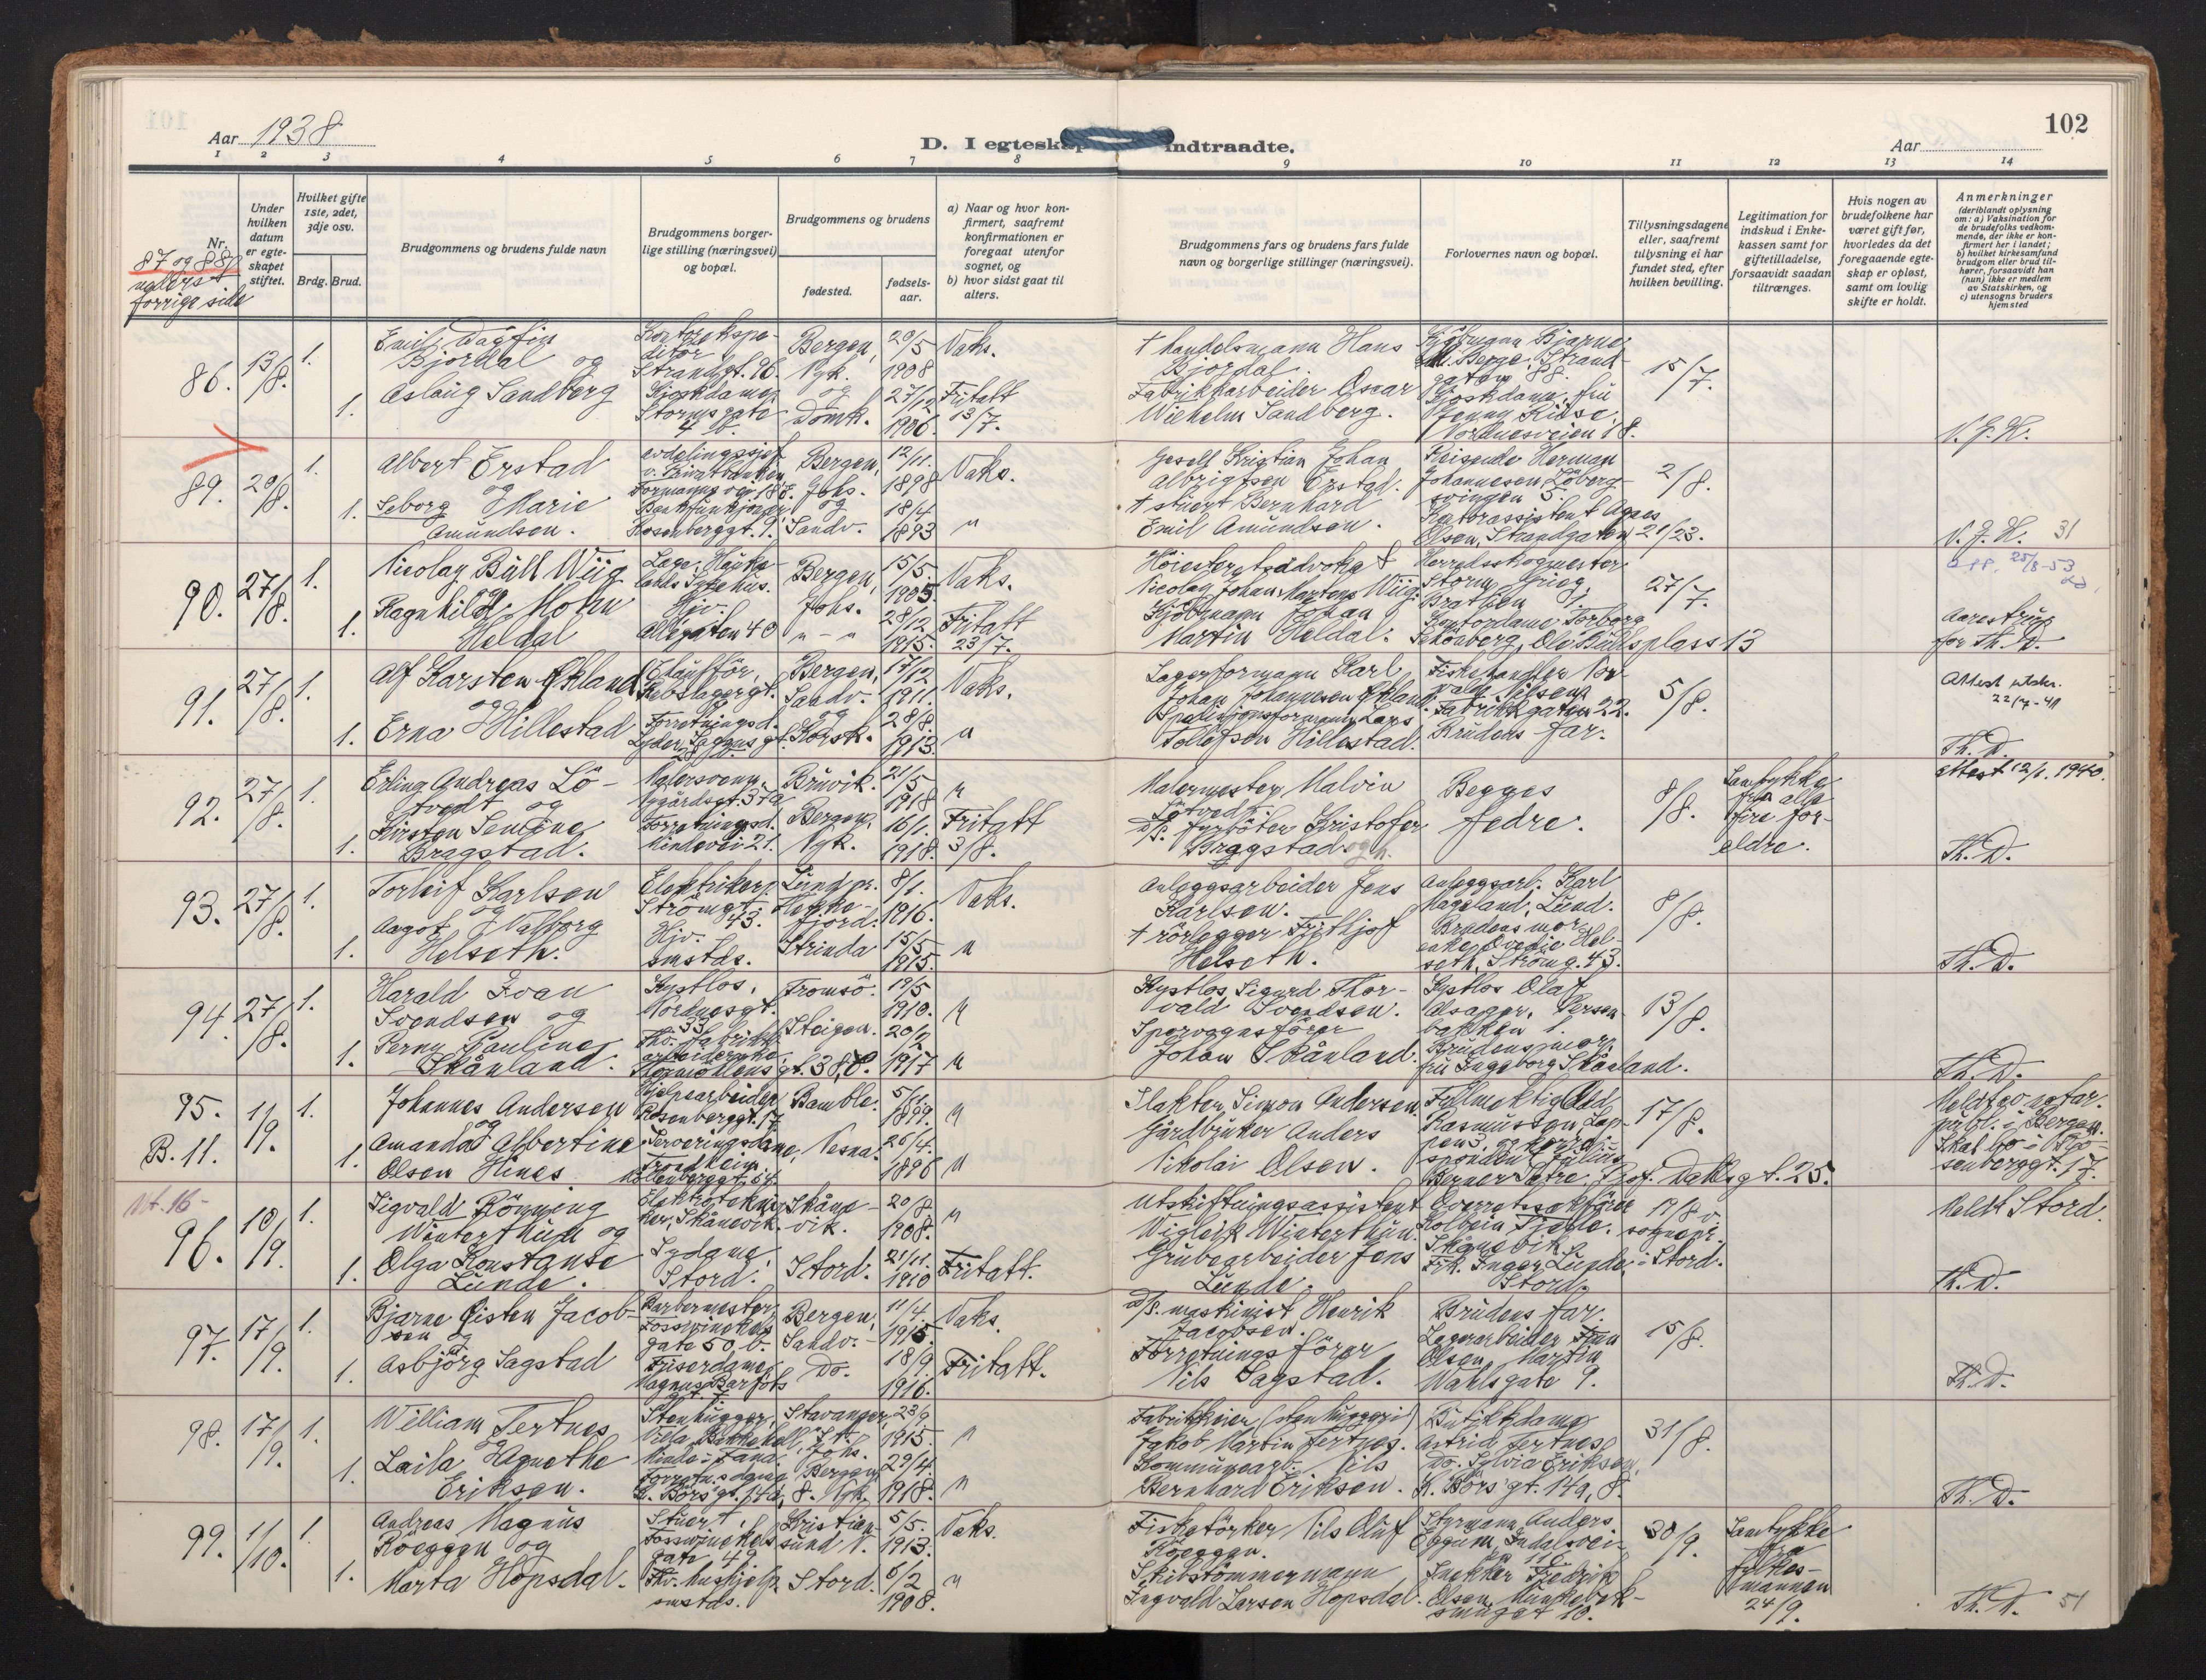 102
Aar 1938
D. I egteskap indtraadte.
Aar
1 2 3 4 5 6 7 8 9 10 11 12 13 14
Nr.
Under hvilken datum er egteskapet stiftet.
Hvilket gifte 1ste, 2det, 3dje osv.
Brdg. Brud.
Brudgommens og brudens fulde navn
Brudgommens borgerlige stilling (næringsvei) og bopæl.
Brudgommens og brudens
fødested.
fødselsaar.
a) Naar og hvor konfirmert, saafremt konfirmationen er foregaat utenfor sognet, og
b) hvor sidst gaat til alters.
Brudgommens fars og brudens fars fulde navn og borgerlige stillinger (næringsvei).
Forlovernes navn og bopæl.
Tillysningsdagene eller, saafremt tullysning ei har fundet sted, efter hvilken bevilling.
Legitimation for indskud i Enkekassen samt for giftetilladelse, forsaavidt saadan tiltrænges.
Hvis nogen av brudefolkene har været gift før, hvorledes da det foregaaende egteskap er opløst, samt om lovlig skifte er holdt.
Anmerkninger
(deriblandt oplysning om: a) Vaksination for de brudefolks vedkommende, der ikke er konfirmert her i landet; b) hvilket kirkesamfund brudgom eller brud tilhører, forsaavidt han (hun) ikke er medlem av Statskirken, og c) utensogns bruders hjemsted
87 og 88
forrige side
86. 13/8. 1.
Emil Dagfin
Bjordal og
1. Aslaug Sandberg
Strandgt. 96.
Kioskdame,
Storms gate
Bergen, Nyk.
og
Domk.
20/5 1908
27/12 1906.
Vaks.
Fritatt 13/7.
† Handelsmann Hans
Bjordal.
Fabrikkarbeider Oscar
Wilhelm Sandberg.
Kjöbmann Bjarne
Berge, Strand-
gaten 88.
Kioskdame, fru
Jenny
Nordnesveien 18.
15/7.
N. J. H.
89. 20/8. 1.
Albert Erstad
og
1. Seborg Marie
Amundsen.
avdelingssjef
v. Privatbanken
Rosenberggt. 9.
Bergen, Johs.
og
Sandv.
12/11. 1898
18/4 1893
Vaks.
"
Gesell Kristian Johan
Albrigtsen Erstad.
† stuert Bernhard
Emil Amundsen.
Reisende Herman
Johannesen, Löberg-
svingen 5.
Kontorassistent Agnes
Olsen, Strandgaten 21/23.
2/8.
N. J. H. 31
25/8-53
90. 27/8. 1.
Nicolay Büll Wiig
og
1. Ragnhild Mohn
Heldal
Læge, Hauke-
lands Sykehus.
Hjv.
Allégaten 40
Bergen, Johs.
" - "
15/5 1905
28/12 1915.
Vaks.
Fritatt 23/7.
Höiesterettsadvokat
Nicolay Johan Martens Wiig.
Kjöbmann Johan
Martin Heldal.
Herredsskogmester
Storm Grieg,
Kontordame Torborg
Schönberg, Ole Bulls plass 13
27/7.
Aarestrup
for Th. D.
91. 27/8. 1.
Alf Karsten Økland
og
1. Erna Hillestad
Chauffør,
Rebslagergt.
Forretningsd.
Lyder Sagens gt.
Bergen, Sandv.
og
Korsk.
17/12 1911.
28/8. 1913.
Vaks.
"
Lagerformann Karl
Johan Johannesen Økland.
Spedisjonsformann Lars
Tollefsen Hillestad.
Fiskehandler Nor-
vald Nilsen,
Fabrikkgaten 22.
Brudens far.
5/8.
Attest utstr.
22/7-41
Th. D.
92. 27/8. 1.
Erling Andreas Lö-
tvedt og
1. Kirsten Semine
Bragstad.
Malersvenn,
Nygårdsgt. 37a
Forretningsd.
Mindevei 21.
Bruvik.
Bergen, Nyk.
21/5 1918
16/1. 1918.
"
Fritatt 3/8.
Malermester Malvin
Lötvedt.
D/s. fyrböter Kristofer
Bragstad.
Begges
fedre.
8/8.
Samtykke
fra alle
fire for-
eldre.
Attest 12/1. 1940.
Th. D.
93. 27/8. 1.
Torleif Karlsen
og
1. Aagot Valborg
Helseth.
Elektriker,
Strömgt. 43.
Hjv.
smstds.
Lund pr. Hekke-
fjord.
Strinda
8/1. 1916.
15/5 1915.
Vaks.
"
Anleggsarbeider Jens
Karlsen.
† rörlegger Frithjof
Helseth.
Anleggsarb. Karl
Mageland, Lund.
Brudens mor
enke Ovedie Hel-
seth, Strömg. 43.
8/8.
Th. D.
94. 27/8. 1.
Harald Ivan
Svendsen og
1. Perny Pauline
Skånland.
Kystlos,
Nordnesgt.
33.
Fhv. fabrikk-
arbeiderske,
Stormöllens gt. 38, C.
Tromsö.
Steigen.
19/5 1910.
20/2 1917
"
"
Kystlos Sigurd Thor-
vald Svendsen.
Sporvognsförer
Johan Skånland.
Kystlos Olaf
Olsager, Persen-
bakken 1.
Brudens mor,
fru Ingeborg Skånland.
13/8.
Th. D.
95. 11/9. 1.
B. 11.
Johannes Andersen
og
1. Amanda Albertine
Olsen Hines.
Hjelpearbeider
Rosenberggt. 17
Serveringsdame,
Trondheim,
Möllenberggt. 54.
Bamble.
Nesna.
5/11. 1899.
26/4. 1896
"
"
Slakter Simon Andersen.
Gårdbruker Anders
Nikolai Olsen.
Fullmektig Odd
Rasmussen, Lap-
pen 3, og korre-
spondent Julius
Berner Sætre, Prof. Dahls gt. 25.
17/8.
Meldt
i Bergen.
Skal bo i Ro-
senberggt. 17.
Ut. 16-
96. 10/9. 1.
Sigvald Rönning
Winterthun og
1. Olga Konstanse
Lunde.
Elektrotekni-
ker, Skånevik
Sydame,
Stord.
Skåne-
vik.
Stord.
20/8. 1908.
21/11. 1910
"
Fritatt.
Utskiftningsassistent
Wigleik Winterthun.
Grubearbeider Jens
Lunde.
Overrettssakförer
Kolbein Fjelle,
Skånevik.
Frk. Inger Lunde,
Stord.
17/8 v.
sognepr.
i Stord.
Meldt Stord.
Th. D.
97. 17/9. 1.
Bjarne Öisten Jacob-
sen og
1. Asbjörg Sagstad
Barbermester,
Fosswinckels
gate 50, b.
Friserdame,
Magnus Barfots
Bergen, Sandv.
Do.
11/4. 1915.
18/9. 1916.
Vaks.
Fritatt.
D/s. maskinist Henrik
Jacobsen.
Forretningsförer
Nils Sagstad.
Brudens far.
Lagerarbeider
Olsen, Martin
Wahlsgate 9.
15/8.
Th. D.
98. 17/9. 1.
William Tertnes
og
1. Laila Agnethe
Eriksen.
Stenhugger,
Minde i Fana.
Forretn.sdame
K. Börs gt. 14a, 8.
Stavanger, St. Johs.
Bergen, Nyk.
23/9 1915.
29/4. 1918.
"
"
Fabrikkeier (stenhuggeri)
Jakob Martin Tertnes.
Kommunearb. Nils
Bernhard Eriksen.
Butikkdame
Astrid Tertnes
Do. Sylvia Eriksen,
K. Börs gt. 14a, 8.
31/8.
Th. D.
99. 1/10. 1.
Andreas Magnus
Röeggen og
1. Marta Hopsdal.
Stuert,
Fosswinckels
gate 49.
Fhv. hushjelp
smstds.
Kristian-
sund N.
Stord.
5/5. 1913.
6/2 1908.
Vaks.
"
Fisketörker Nils Oluf
Röeggen.
Skibstömmermann
Ingvald Larsen Hopsdal.
Styrmann Anders
Eggum, Indalsvei-
en 110
Snekker Fredrik
Olsen, Munkebek-
smuget 10.
30/9.
Samtykke
fra
fylkes-
mannen
24/9.
Th. D. 51